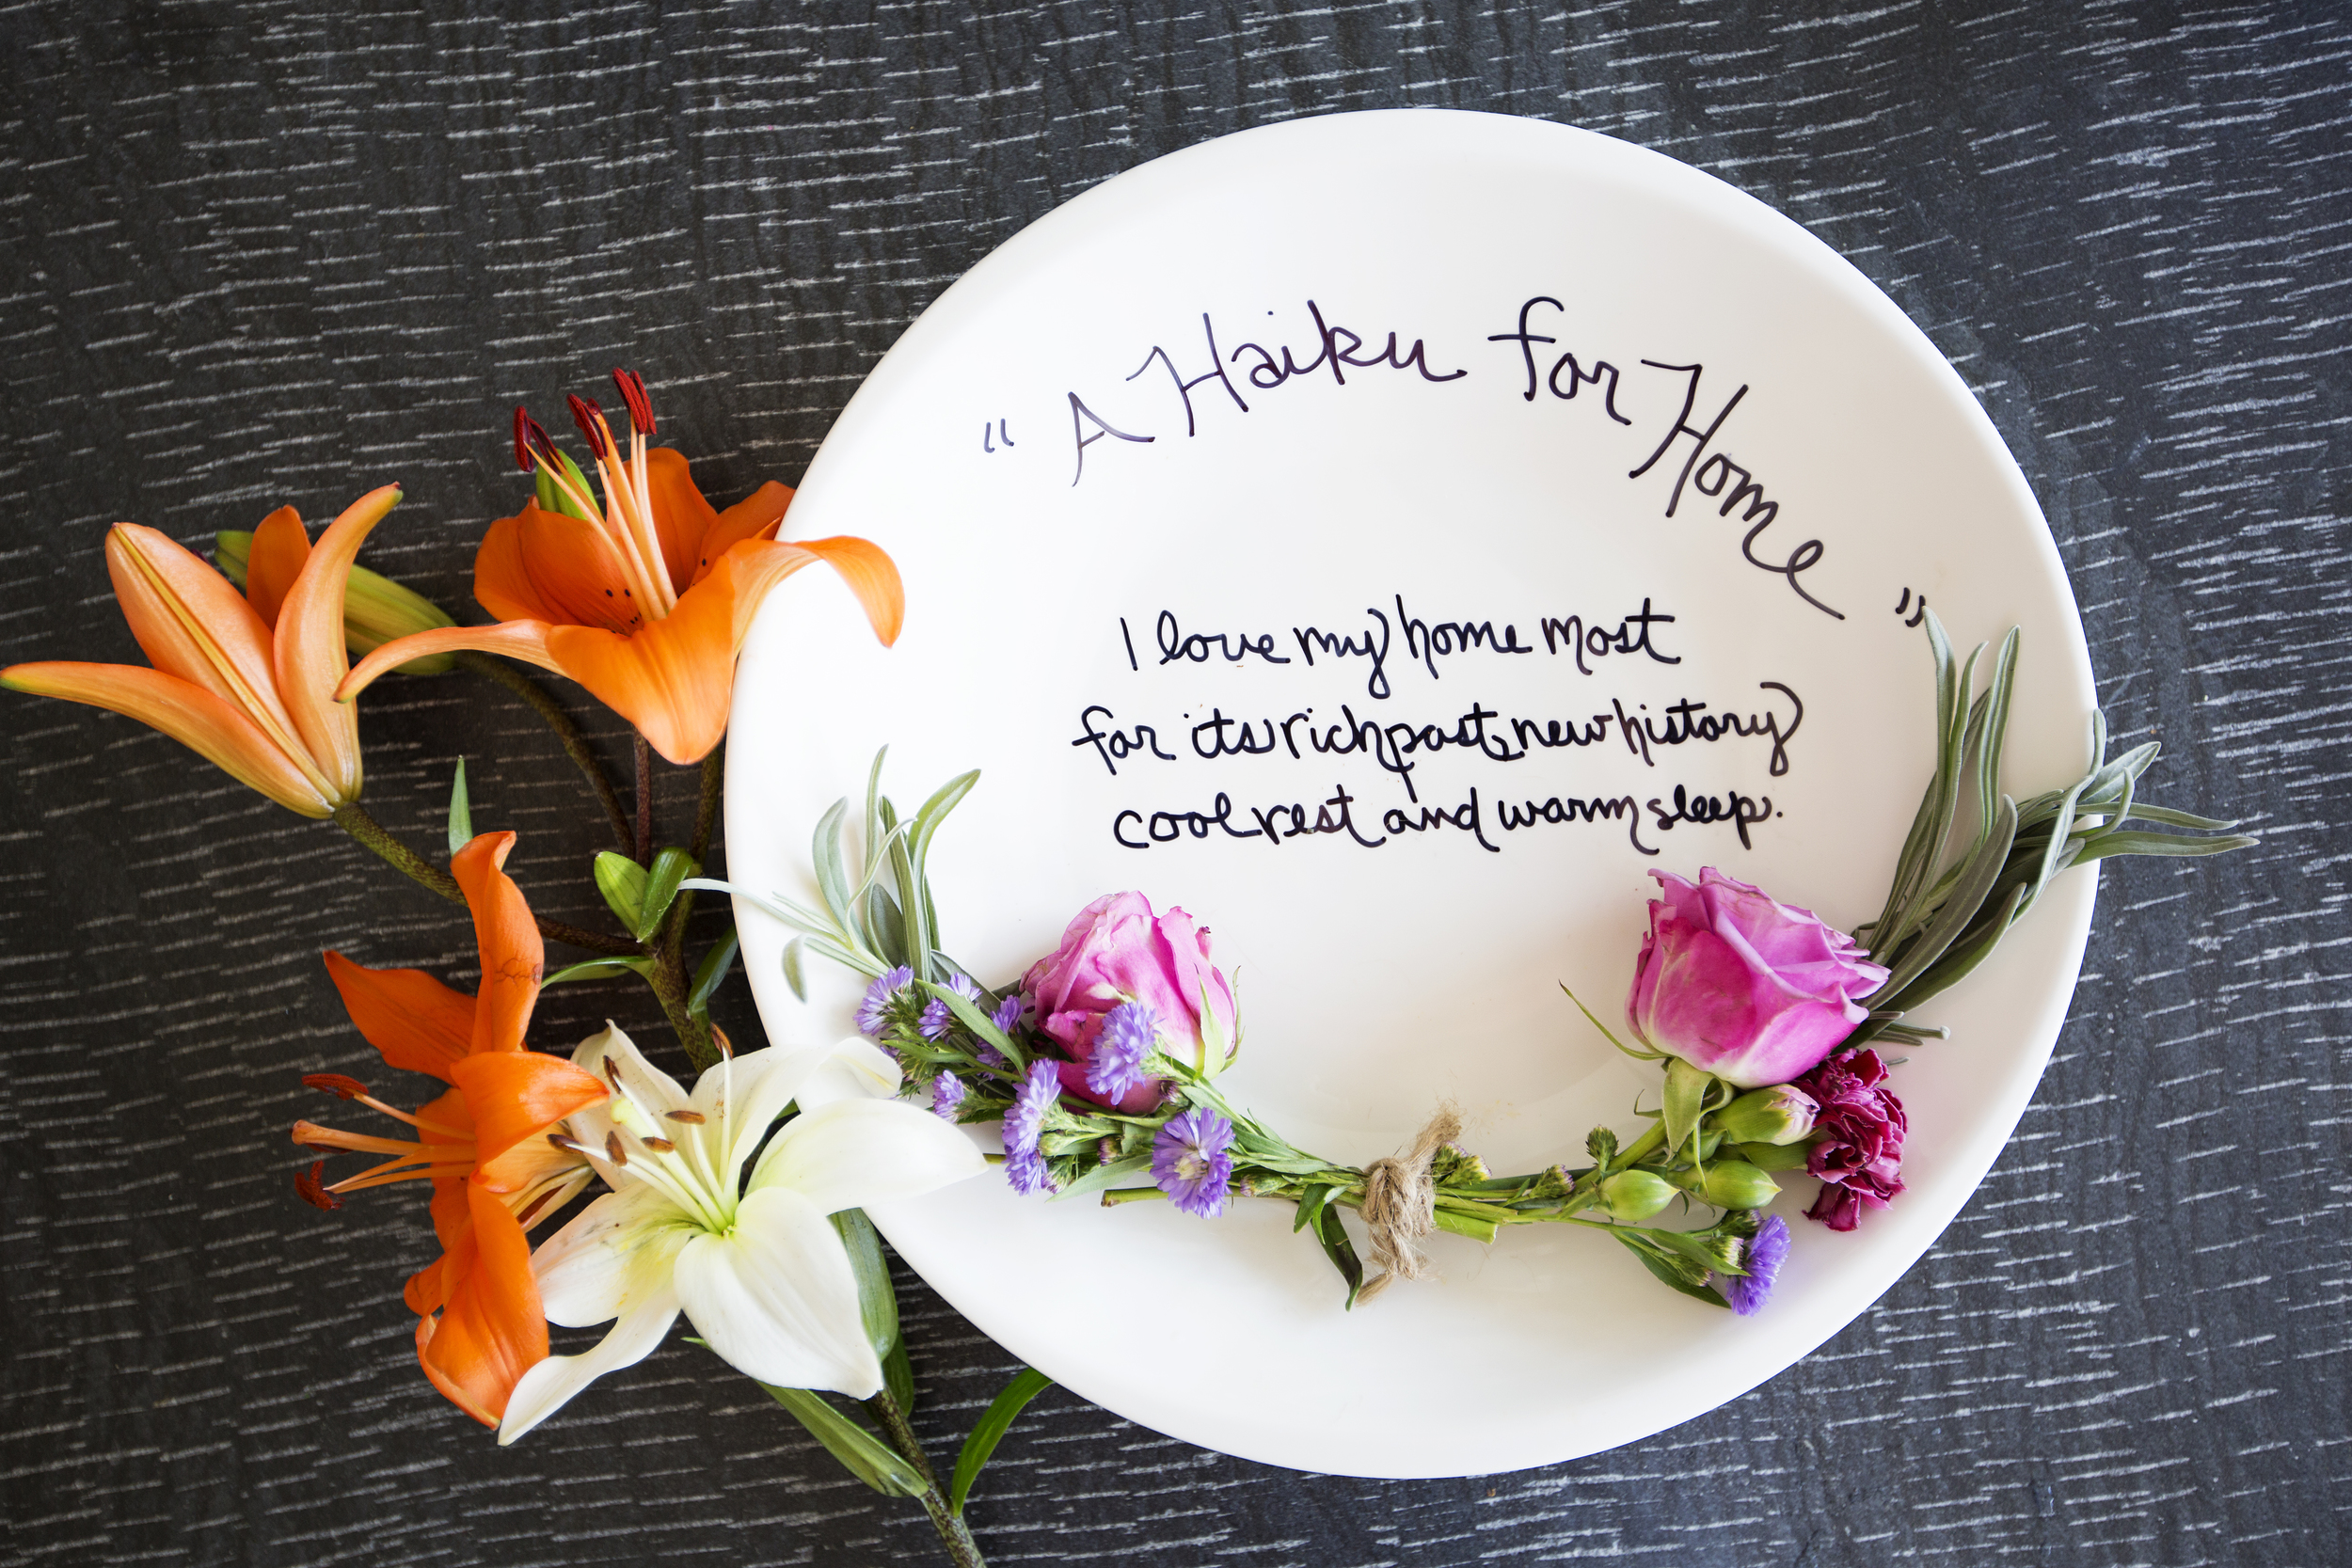 "A Haiku for Home"
I love my home most
for its rich past, new history
cool rest and warm sleep.